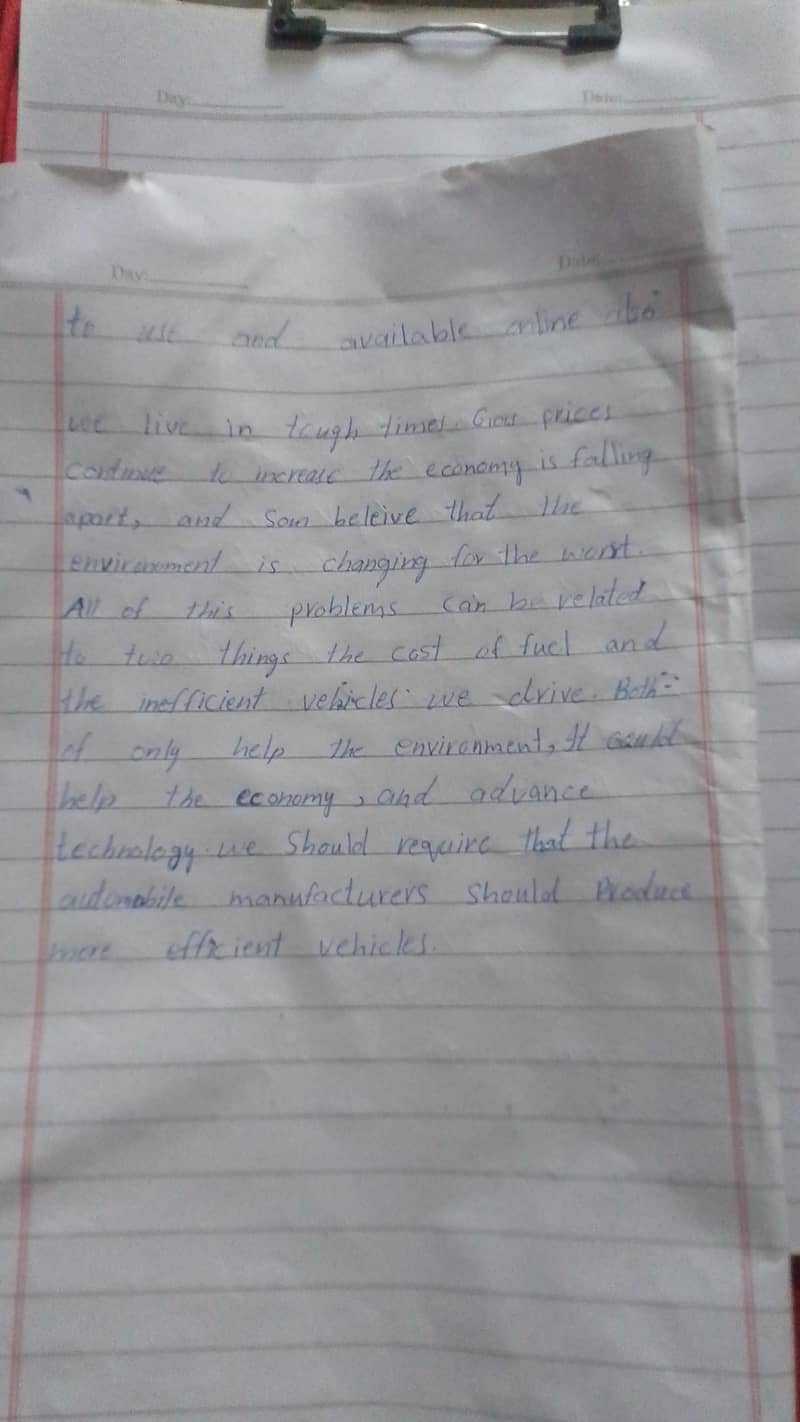 Day:
Date:
Day:
Date:
to use and available online also
we live in tough times. Gas prices
continue to increase the economy is falling
apart, and Som beleive that the
environoment is changing for the worst.
All of this problems can be related
to two things the cost of fuel and
the inefficient vehicles we drive. Both
of only help the environment, It could
help the economy, and advance
technology. we Should require that the
automobile manufacturers Should Produce
more efficient vehicles.